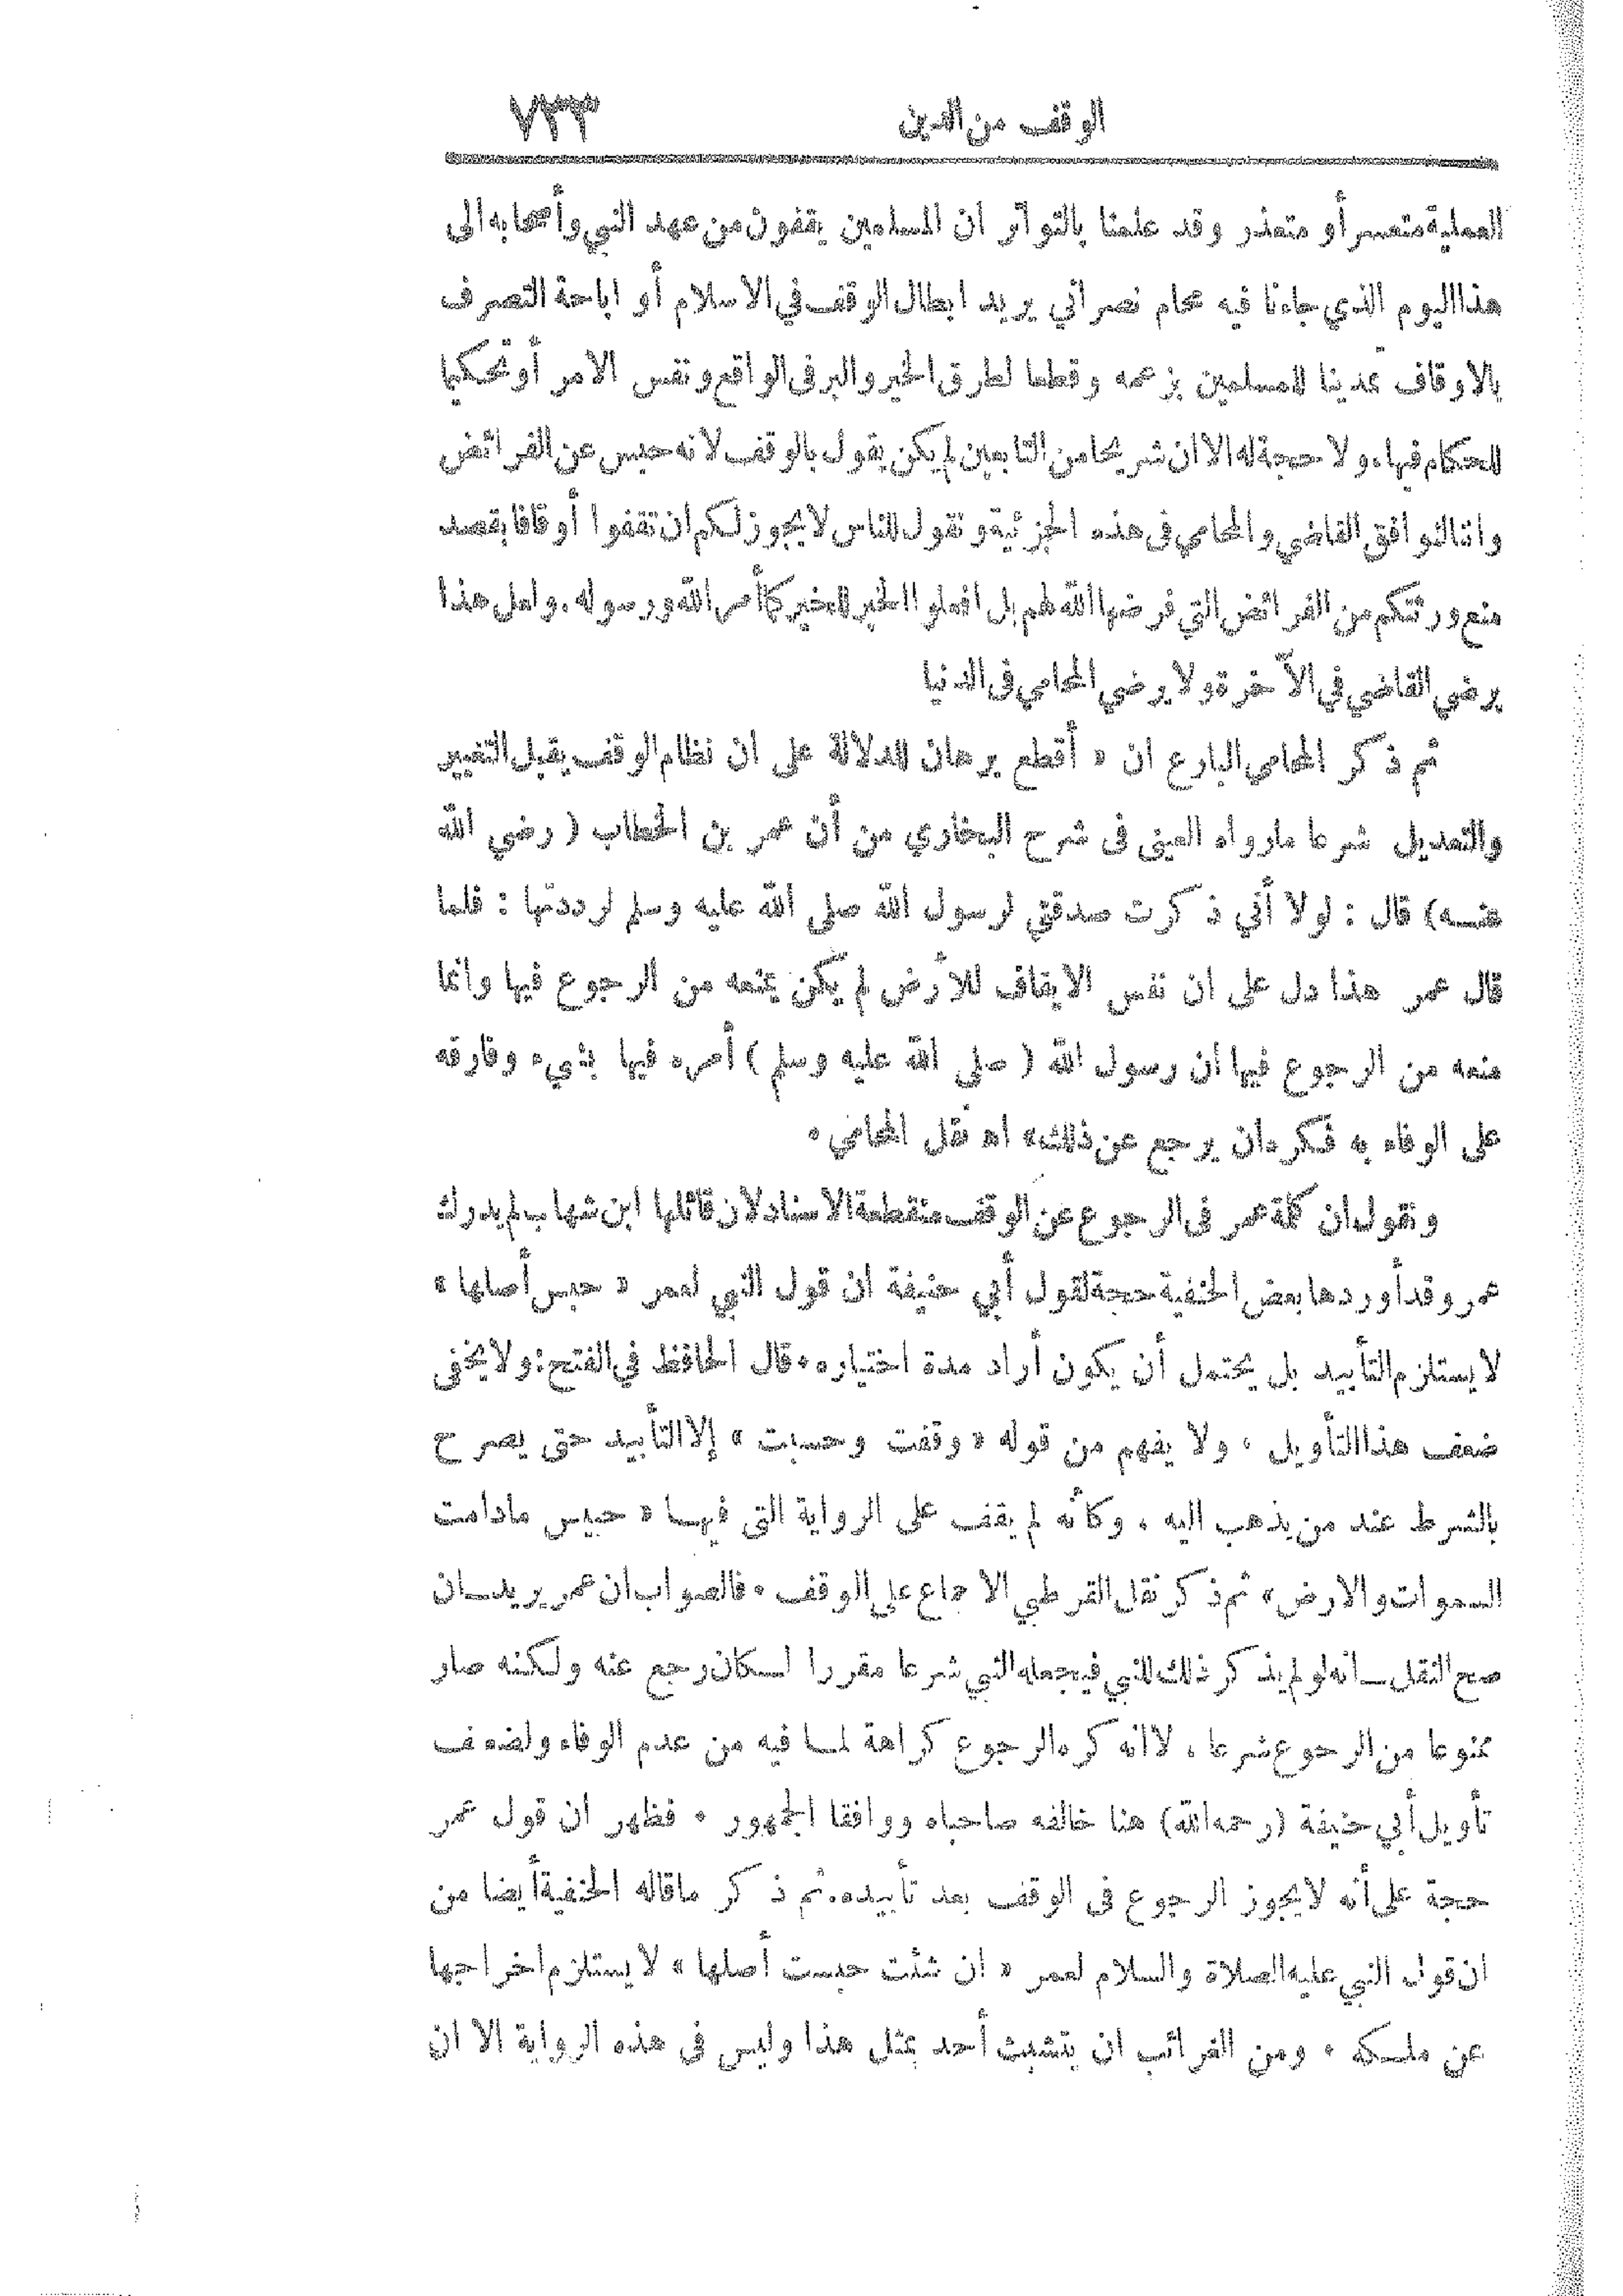 الوقف من الدين ٧٣٣
العملية متعسر أو متعذر وقد علمنا بالتواتر ان المسلمين يقفون من عهد النبي وأصحابه الى
هذا اليوم الذي جاءنا فيه محام نصراني يريد ابطال الوقف في الاسلام أو اباحة التصرف
بالاوقاف تمدينا للمسلمين بزعمه وقطعا لطرق الخير والبر فى الواقع ونفس الامر أو تحكيما
للحكام فيها. ولا حجة له الا ان شريحا من التابعين لم يكن يقول بالوقف لانه حبس عن الفرائض
واننا لنوافق القاضي والمحامي فى هذه الجزئية ونقول للناس لا يجوز لكم ان تقفوا أوقافا بقصد
منع ورثتكم من الفرائض التي فرضها الله لهم بل افعلوا الخير للخير كما أمر الله ورسوله. ولعل هذا
يرضي القاضي في الآخرة ولا يرضي المحامي فى الدنيا
ثم ذكر المحامي البارع ان « أقطع برهان للدلالة على ان نظام الوقف يقبل التغيير
والتعديل شرعا مارواه العينى فى شرح البخاري من أن عمر بن الخطاب ( رضي الله
عنـــه) قال : لولا أني ذكرت صدقتي لرسول الله صلى الله عليه وسلم لرددتها : فلما
قال عمر هذا دل على ان نفس الايقاف للأرض لم يكن يمنعه من الرجوع فيها وانما
منعه من الرجوع فيها ان رسول الله ( صلى الله عليه وسلم ) أمره فيها بشيء وفارقه
على الوفاء به فكره ان يرجع عن ذلك» اه نقل المحامي .
ونقول ان كلمة عمر فى الرجوع عن الوقف منقطعة الاسناد لان قائلها ابن شهاب لم يدرك
عمر وقد أوردها بعض الحنفية حجة لقول أبي حنيفة ان قول النبي لعمر « حبس أصلها »
لا يستلزم التأبيد بل يحتمل أن يكون أراد مدة اختياره . قال الحافظ في الفتح : ولا يخفى
ضعف هذا التأويل ، ولا يفهم من قوله « وقفت وحبست » إلا التأبيد حتى يصرح
بالشرط عند من يذهب اليه . وكأنه لم يقف على الرواية التى فيهـــا « حبيس مادامت
السموات والارض» ثم ذكر نقل القرطبي الاجماع على الوقف . فالصواب ان عمر يريد ــ ان
صح النقل ــ انه لو لم يذكر ذلك للنبي فيجعله النبي شرعا مقررا لـــكان رجع عنه ولكنه صار
ممنوعا من الرجوع شرعا ، لا انه كره الرجوع كراهة لمـــا فيه من عدم الوفاء ولضعف
تأويل أبي حنيفة (رحمه الله) هنا خالفه صاحباه ووافقا الجمهور . فظهر ان قول عمر
حجة على أنه لا يجوز الرجوع فى الوقف بعد تأبيده. ثم ذكر ماقاله الحنفية أيضا من
ان قول النبي عليه الصلاة والسلام لعمر « ان شئت حبست أصلها » لا يستلزم اخراجها
عن ملـــكه . ومن الغرائب ان يتشبث أحد بمثل هذا وليس فى هذه الرواية الا ان